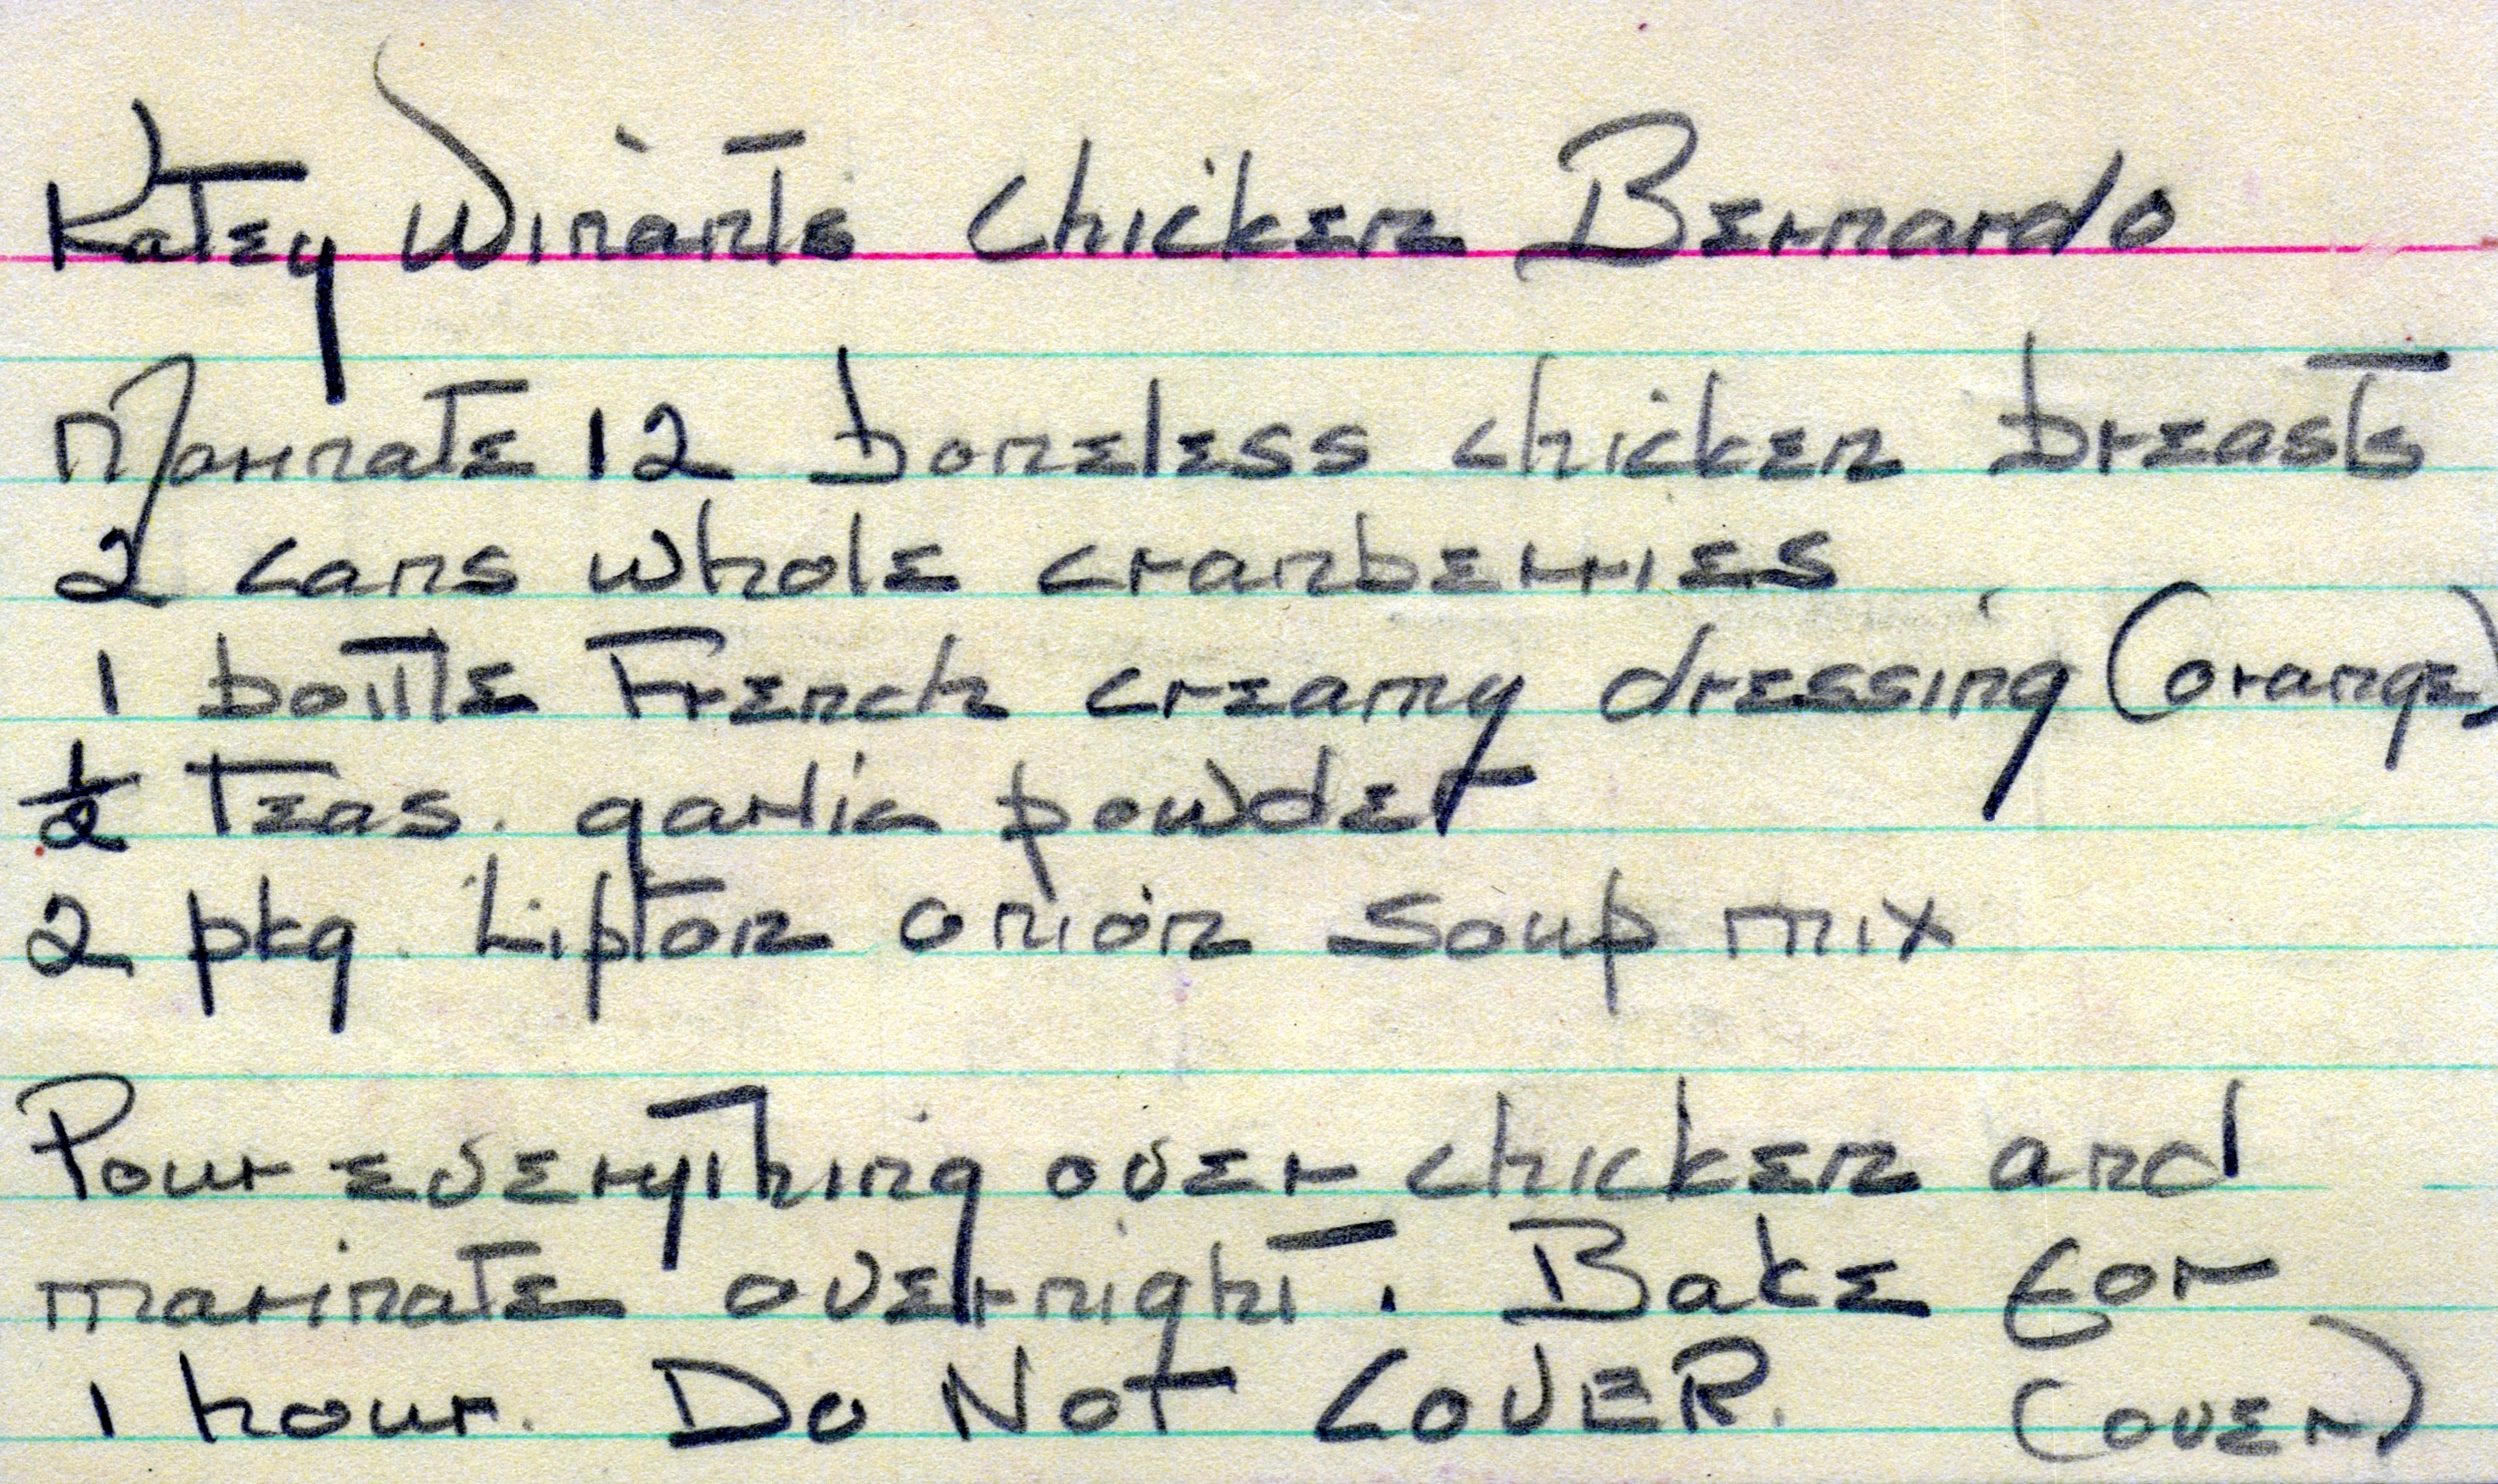 Katey Winants Chicken Bernardo
Marinate 12 boneless chicken breasts
2 cans whole cranberries
1 bottle French creamy dressing (orange)
½ teas. garlic powder
2 pkg. Lipton onion soup mix
Pour everything over chicken and
marinate overnight. Bake for
1 hour. Do NOT COVER. (over)